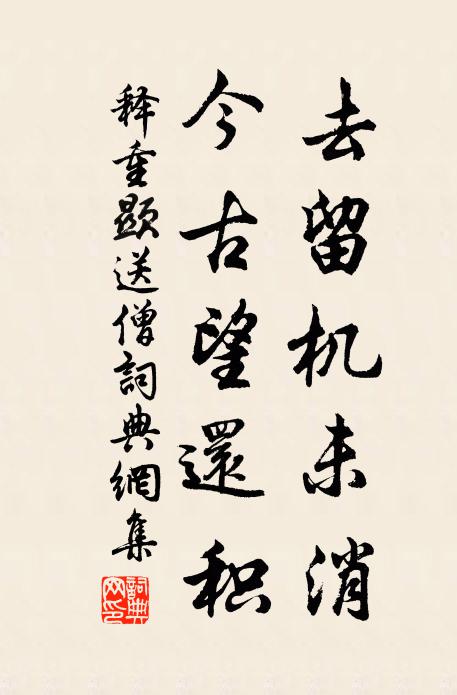 去留机未消
今古望還积
释重顯送僧詞典網集
詞典網印